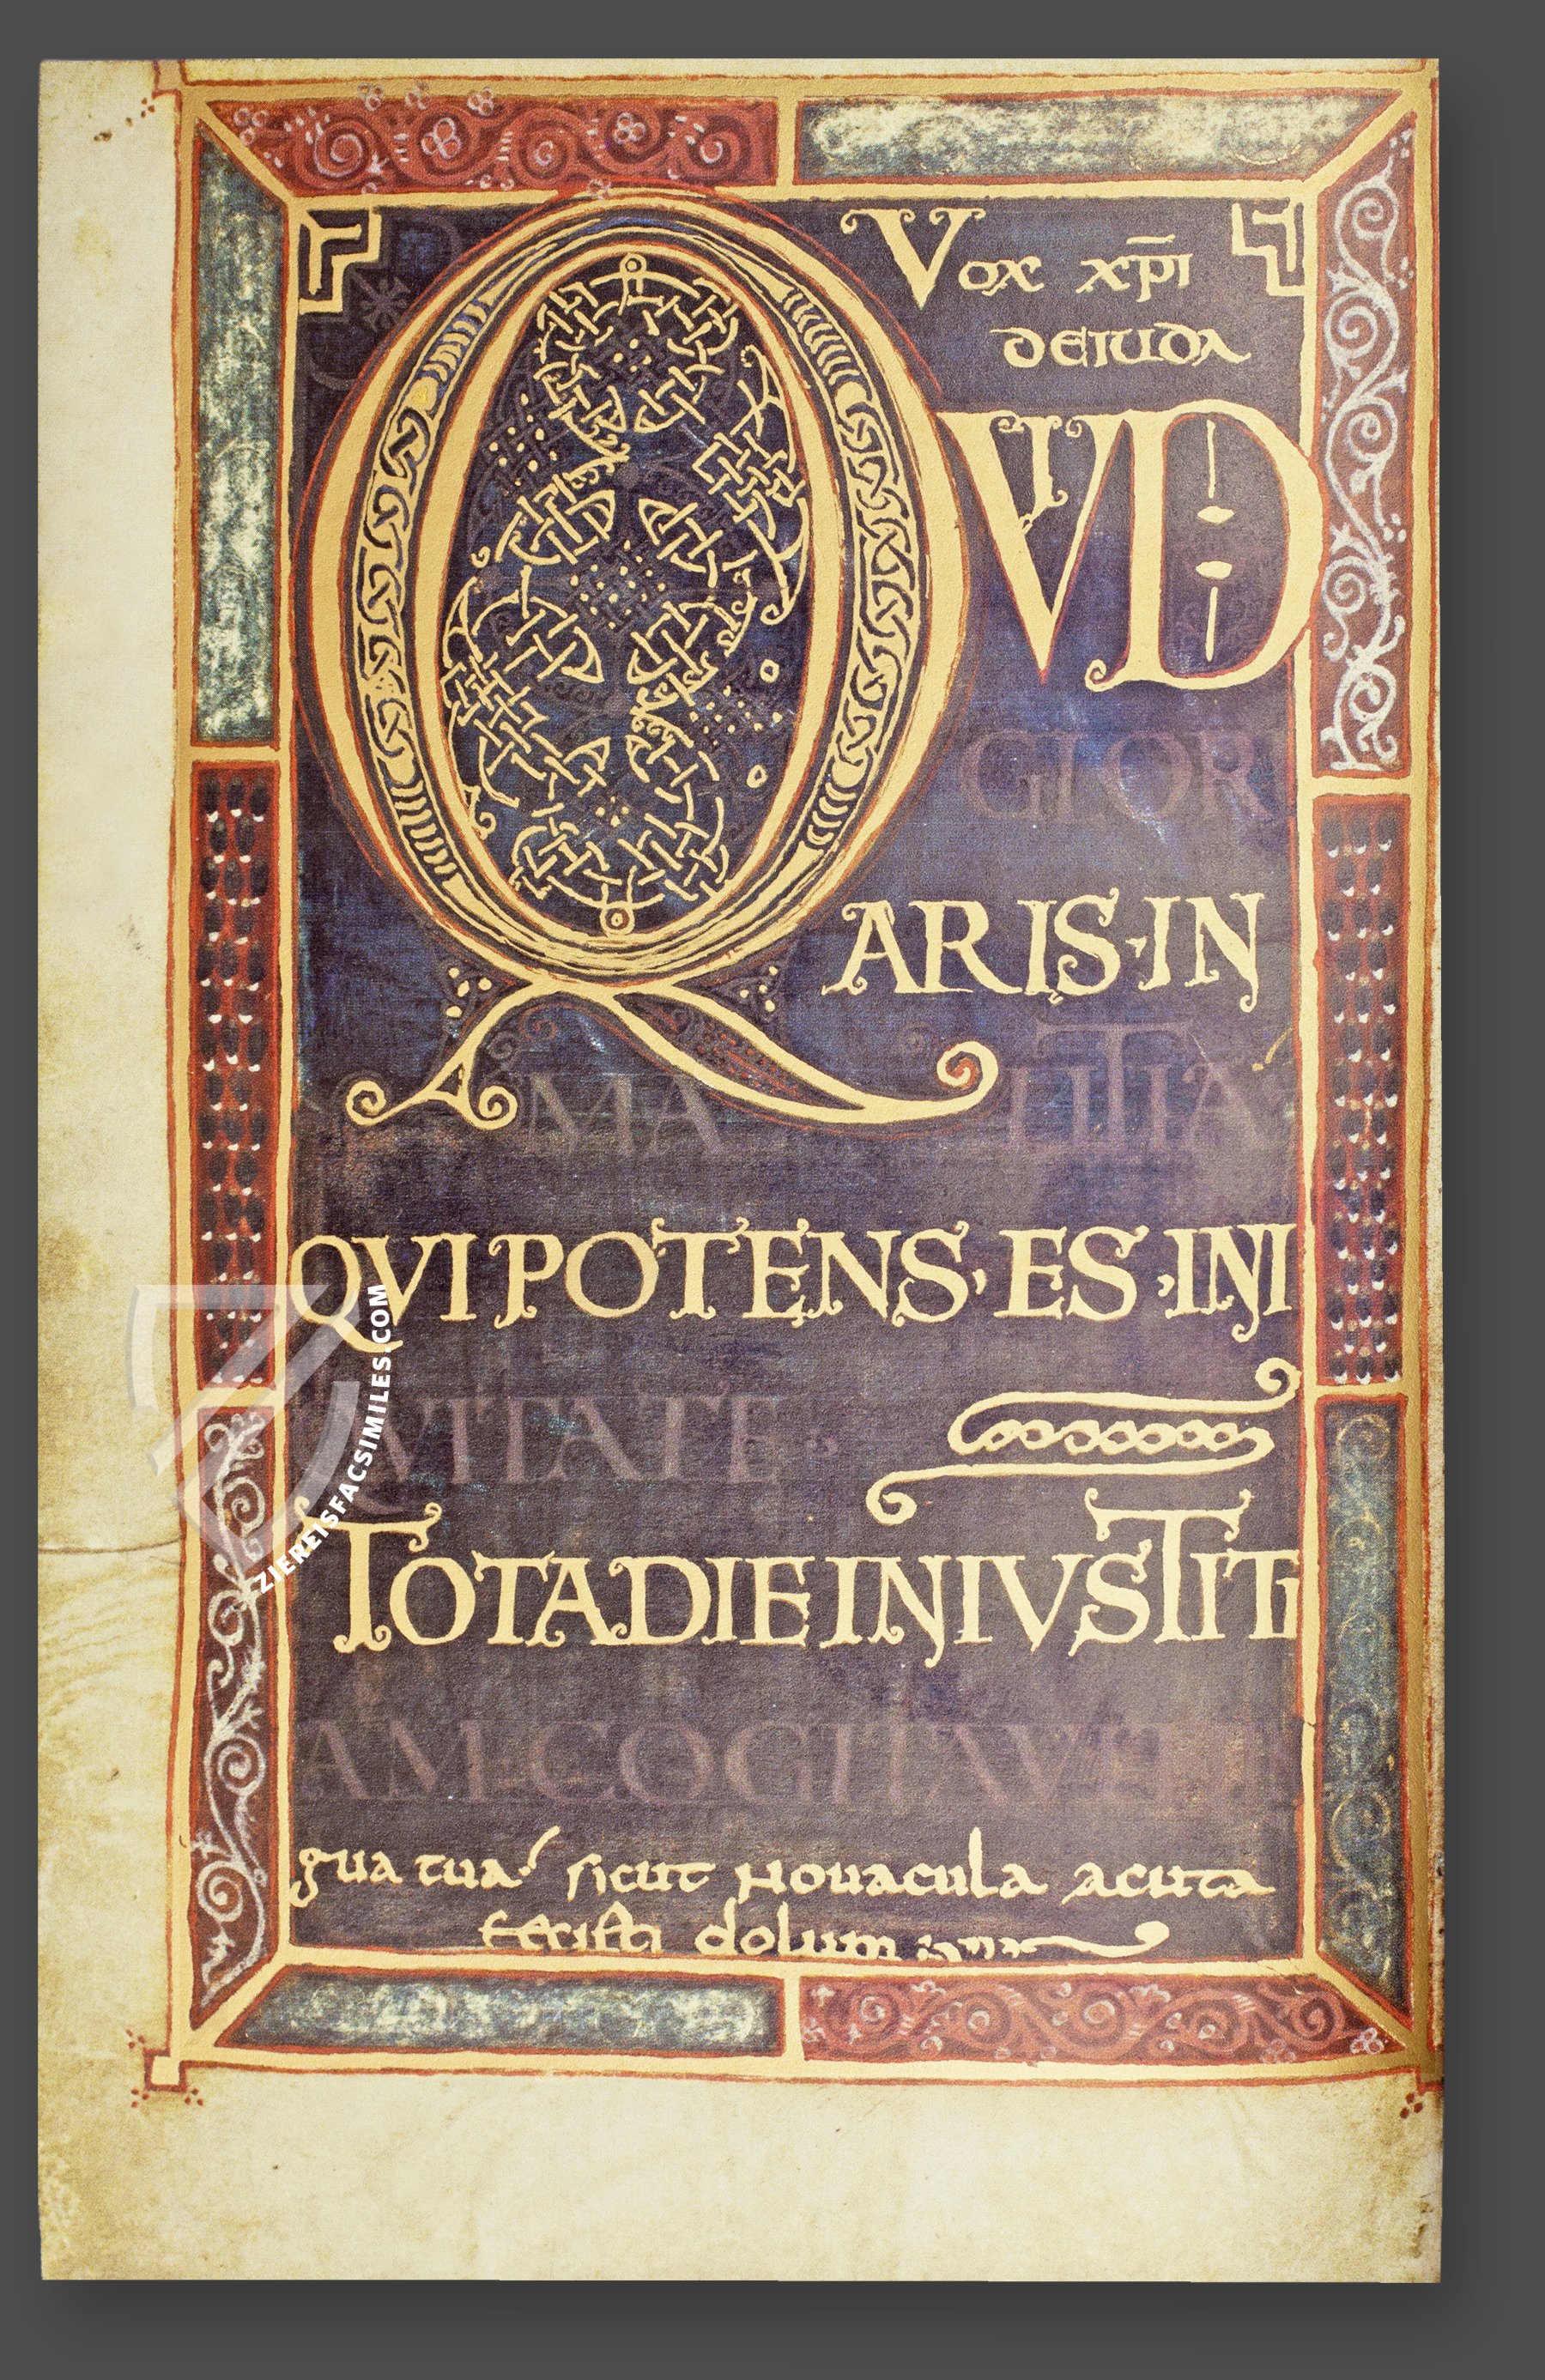 Vox xp̄i
deiuda
QVID
GLOR
ARIS·IN
MALITIA
QVI POTENS· ES ·INI
QVITATE·
TOTA DIE INIVSTITI
AM COGITAVIT
gua tua· sicut nouacula acuta
fecisti dolum
ZIEREISFACSIMILES.COM